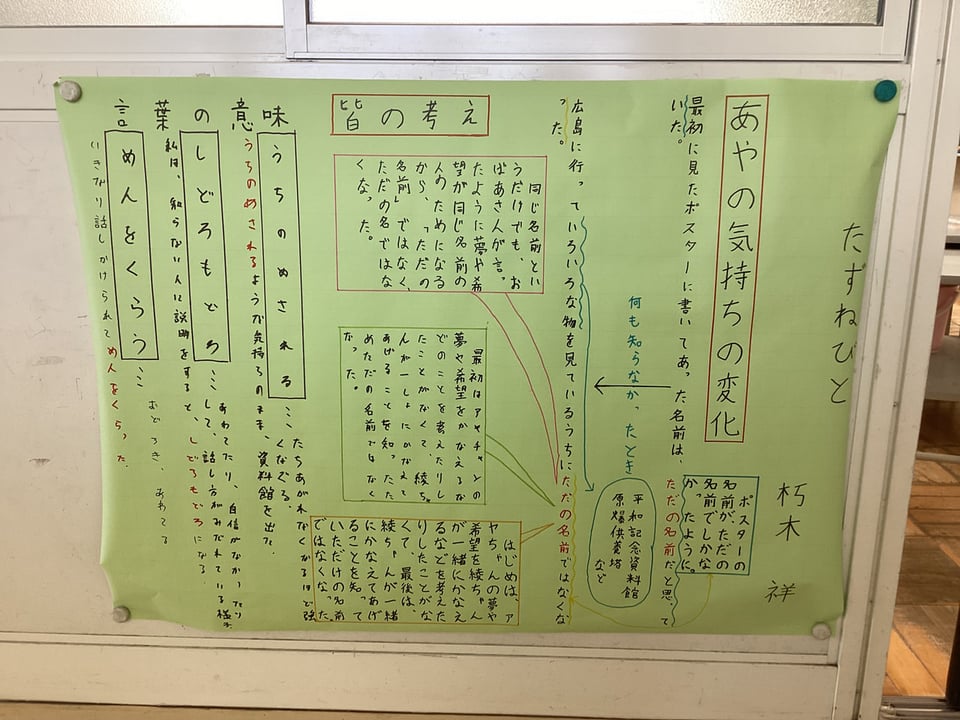 たずねびと
朽木 祥
あやの気持ちの変化
最初に見たポスターに書いてあった名前は、
ただの名前だと思って
いた。
ポスターの
名前がただの
名前でしかな
かったように。
何も知らなかったとき
平和記念資料館
原爆供養塔
など
広島に行っていろいろな物を見ているうちにただの名前ではなくな
った。
皆の考え
同じ名前とい
うだけでも、お
ばあさんが言っ
たように夢や希
望が同じ名前の
人のためになる
から、「ただの
名前」ではなく、
ただの名ではな
くなった。
最初はアヤチャンの
夢や希望をかなえるな
どのことを考えたりし
たことがなくて、綾ち
ゃんが一しょにかなえて
あげることを知ったた
めただの名前ではなく
なった。
はじめは、ア
ヤちゃんの夢や
希望を綾ちゃん
が一緒にかなえ
るなどを考えた
りしたことがな
くて、最後は、
綾ちゃんが一緒
にかなえてあげ
ることを知って
いただけの名前
ではなくなった。
言葉の意味
うちのめされる… たちあがれなくなるほど強
くなぐる。
うちのめされるような気持ちのまま、資料館を出た。
しどろもどろ… あわてたり、自信がなかったり
して、話し方がみだれている様子。
私は、知らない人に説明をすると、しどろもどろになる。
めんをくらう… おどろき、あわてる
いきなり話しかけられてめんをくらった。